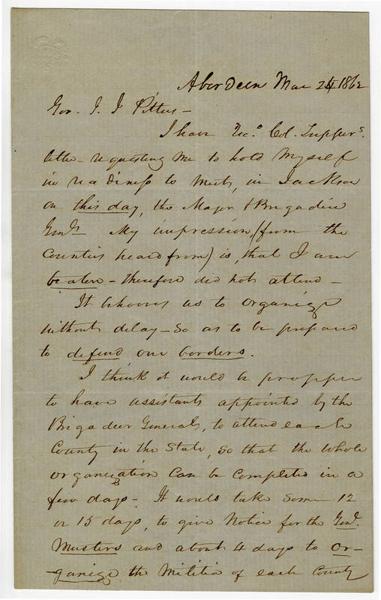 Aberdeen Mar 24 1862
Gov. J. J. Pettus -
I have Rec.d Col. Tupper's
letter - requesting me to hold myself
in readiness to meet, in Jackson
on this day, the Major & Brigadier
Genls. My impression (from the
Counties heard from) is, that I am
beaten - therefore did not attend -
It behooves us to organize
without delay - so as to be prepared
to defend our borders.
I think it would be propper
to have assistants appointed by the
Brigadeer Generals, to attend each
County in the State, so that the whole
organization can be completed in a
few days - It would take some 12
or 15 days, to give Notice for the Genl.
Musters and about 4 days to Or-
ganize the Militia of each County